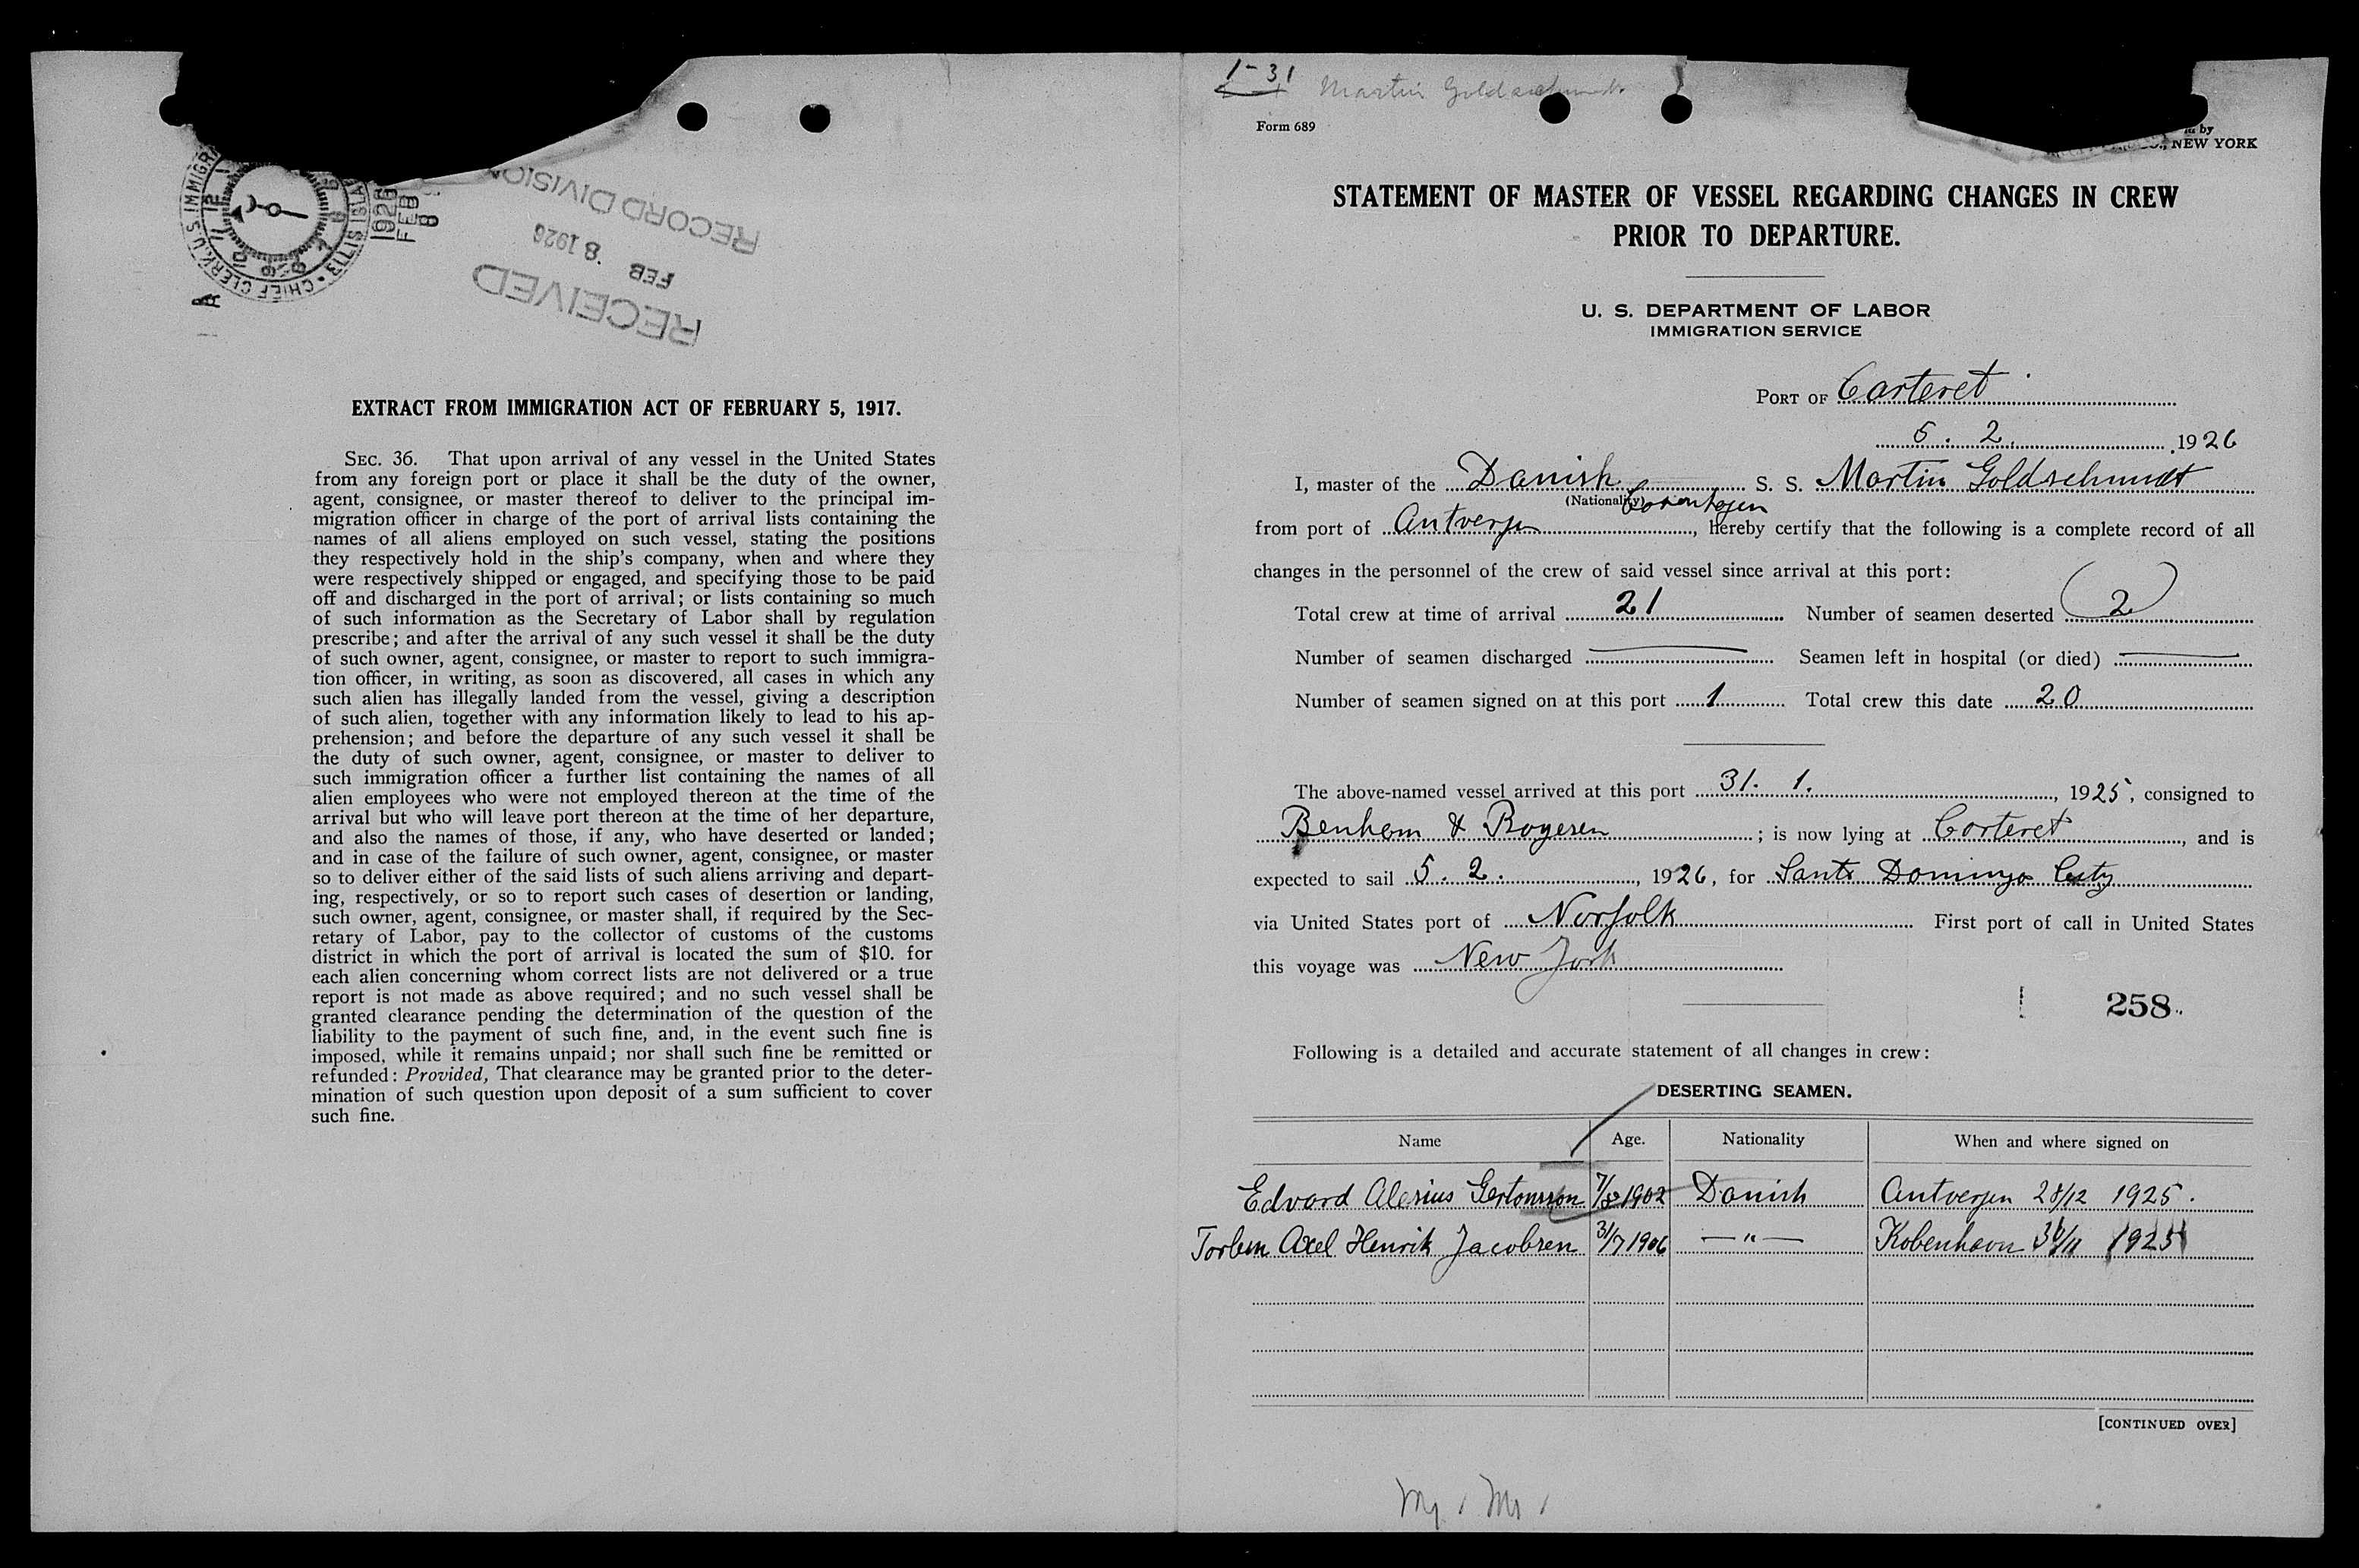 U.S. IMMIGRA
ELLIS ISLA
CHIEF CLERK
1926
FEB
8
A
RECEIVED
FEB 8 1926
RECORD DIVISION
EXTRACT FROM IMMIGRATION ACT OF FEBRUARY 5, 1917.
SEC. 36. That upon arrival of any vessel in the United States
from any foreign port or place it shall be the duty of the owner,
agent, consignee, or master thereof to deliver to the principal im-
migration officer in charge of the port of arrival lists containing the
names of all aliens employed on such vessel, stating the positions
they respectively hold in the ship's company, when and where they
were respectively shipped or engaged, and specifying those to be paid
off and discharged in the port of arrival; or lists containing so much
of such information as the Secretary of Labor shall by regulation
prescribe; and after the arrival of any such vessel it shall be the duty
of such owner, agent, consignee, or master to report to such immigra-
tion officer, in writing, as soon as discovered, all cases in which any
such alien has illegally landed from the vessel, giving a description
of such alien, together with any information likely to lead to his ap-
prehension; and before the departure of any such vessel it shall be
the duty of such owner, agent, consignee, or master to deliver to
such immigration officer a further list containing the names of all
alien employees who were not employed thereon at the time of the
arrival but who will leave port thereon at the time of her departure,
and also the names of those, if any, who have deserted or landed;
and in case of the failure of such owner, agent, consignee, or master
so to deliver either of the said lists of such aliens arriving and depart-
ing, respectively, or so to report such cases of desertion or landing,
such owner, agent, consignee, or master shall, if required by the Sec-
retary of Labor, pay to the collector of customs of the customs
district in which the port of arrival is located the sum of $10. for
each alien concerning whom correct lists are not delivered or a true
report is not made as above required; and no such vessel shall be
granted clearance pending the determination of the question of the
liability to the payment of such fine, and, in the event such fine is
imposed, while it remains unpaid; nor shall such fine be remitted or
refunded: Provided, That clearance may be granted prior to the deter-
mination of such question upon deposit of a sum sufficient to cover
such fine.
1-31 Martin Goldschmidt
Form 689
by
NEW YORK
STATEMENT OF MASTER OF VESSEL REGARDING CHANGES IN CREW
PRIOR TO DEPARTURE.
U. S. DEPARTMENT OF LABOR
IMMIGRATION SERVICE
PORT OF Carteret
5. 2. 1926
I, master of the Danish S. S. Martin Goldschmidt
(Nationality)
from port of Antverpen, hereby certify that the following is a complete record of all
changes in the personnel of the crew of said vessel since arrival at this port:
Total crew at time of arrival 21 Number of seamen deserted 2
Number of seamen discharged — Seamen left in hospital (or died) —
Number of seamen signed on at this port 1 Total crew this date 20
The above-named vessel arrived at this port 31. 1., 1925, consigned to
Benham & Boyesen; is now lying at Carteret, and is
expected to sail 5. 2., 1926, for Santo Domingo City
via United States port of Norfolk First port of call in United States
this voyage was New York
258
Following is a detailed and accurate statement of all changes in crew:
DESERTING SEAMEN.
Name Age. Nationality When and where signed on
Edvard 1902 Danish Antverpen 28/12 1925.
Torben Axel Henrik Jacobsen 31/7 1906 —"— Kobenhavn 1925
[CONTINUED OVER]